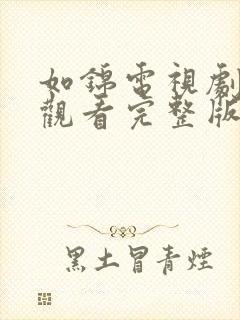 如錦電視劇
觀看完整版
黑土冒青煙